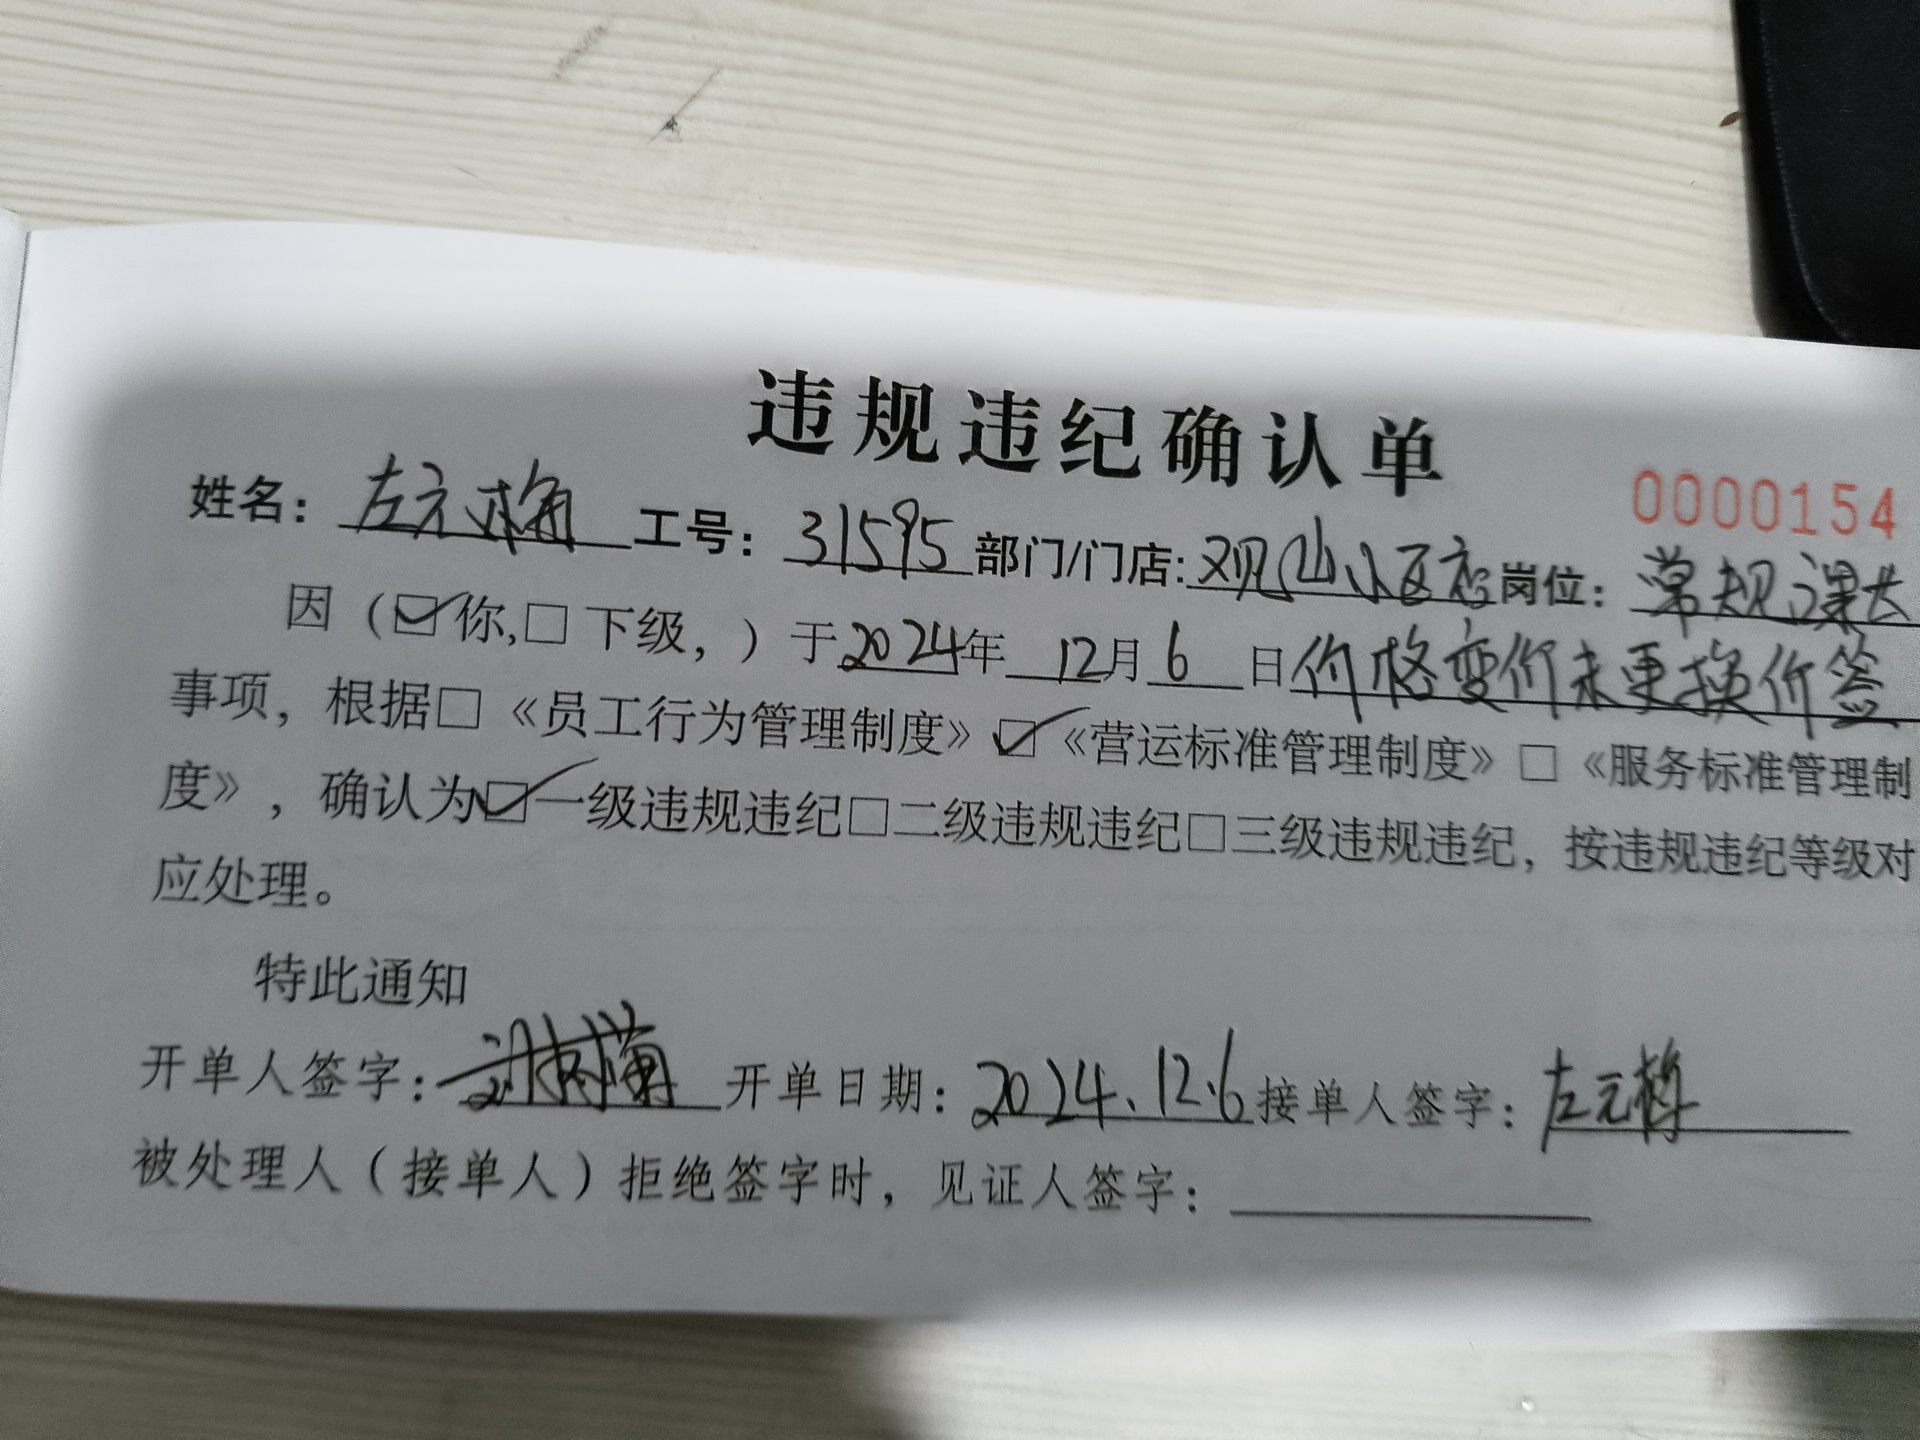 违规违纪确认单
0000154
姓名：左元梅 工号：31595 部门/门店:观山小区店 岗位：常规课长
因（☑你,□下级，）于2024年12月6日价格变价未更换价签
事项，根据□《员工行为管理制度》☑《营运标准管理制度》□《服务标准管理制
度》，确认为☑一级违规违纪□二级违规违纪□三级违规违纪，按违规违纪等级对
应处理。
特此通知
开单人签字： 开单日期：2024.12.6 接单人签字：左元梅
被处理人（接单人）拒绝签字时，见证人签字：